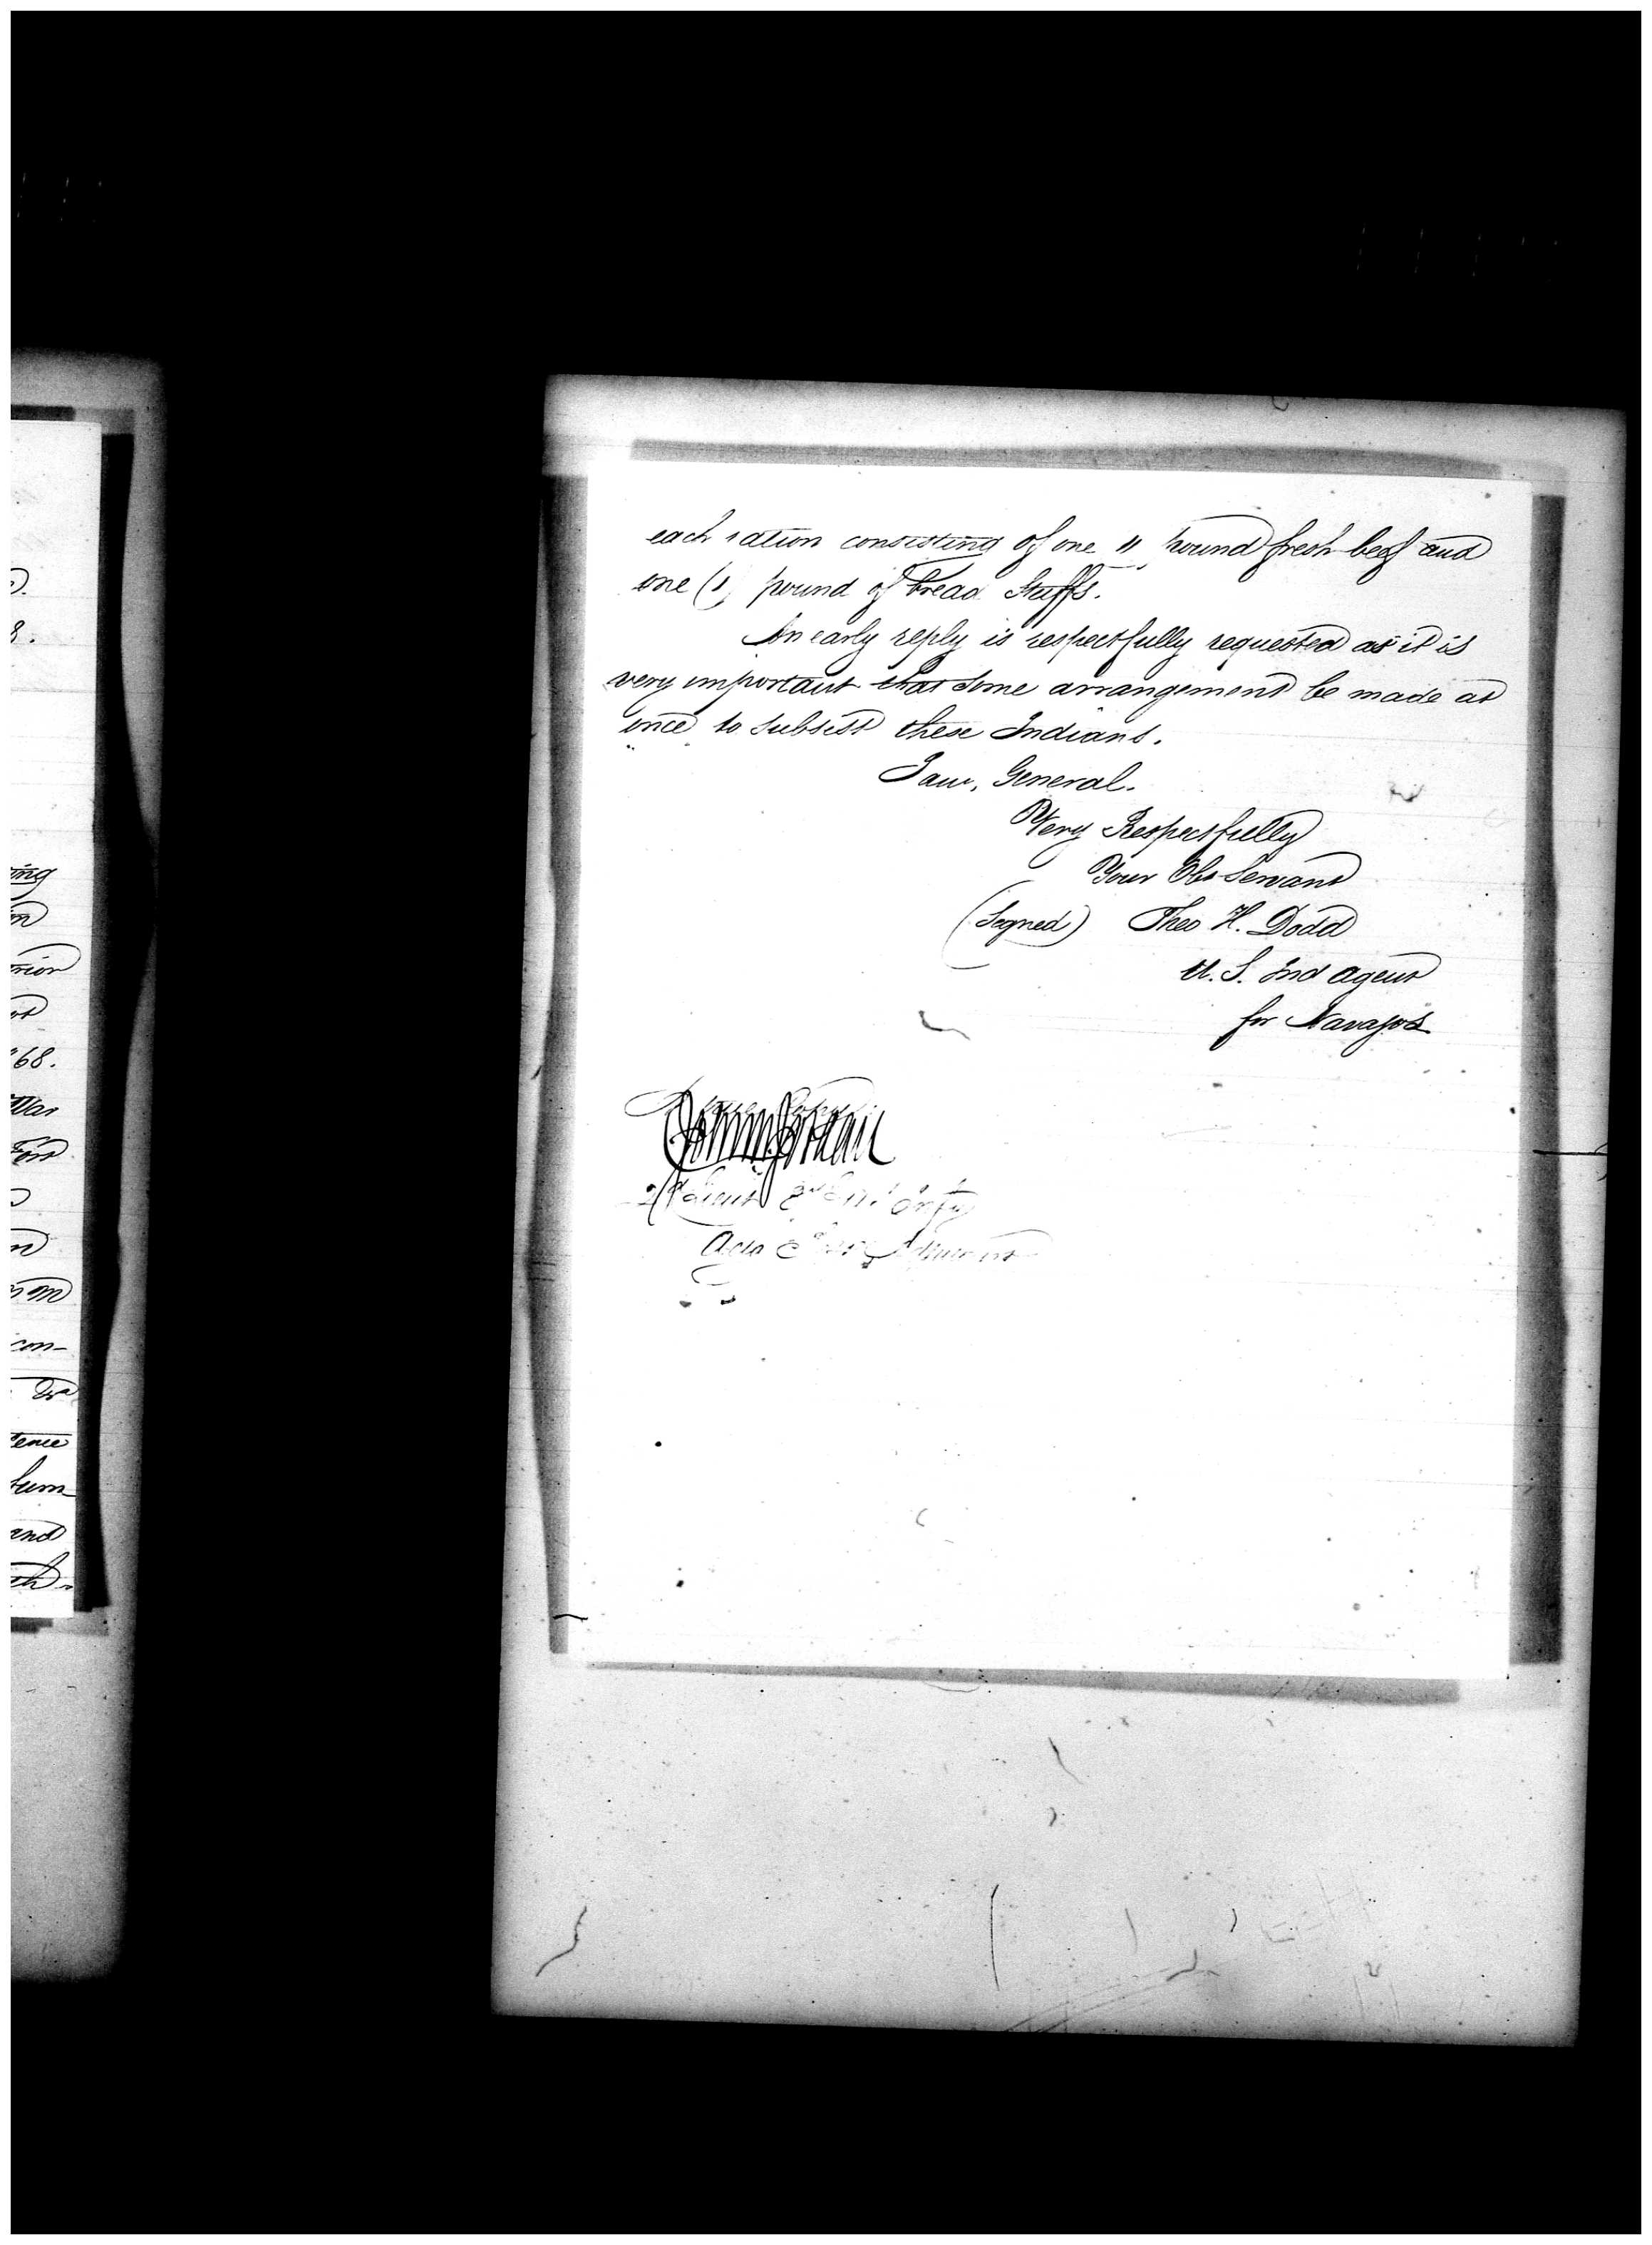 each ration consisting of one (1) pound fresh beef and
one (1) pound of bread Stuffs.
An early reply is respectfully requested as it is
very important that some arrangement be made at
once to subsist these Indians.
I am, General.
Very Respectfully
Your Obt Servant
(Signed) Theo H. Dodd
U. S. Ind Agent
for Navajos
2d Lieut 3rd Infty
Actg
ing
68.
War
con-
and